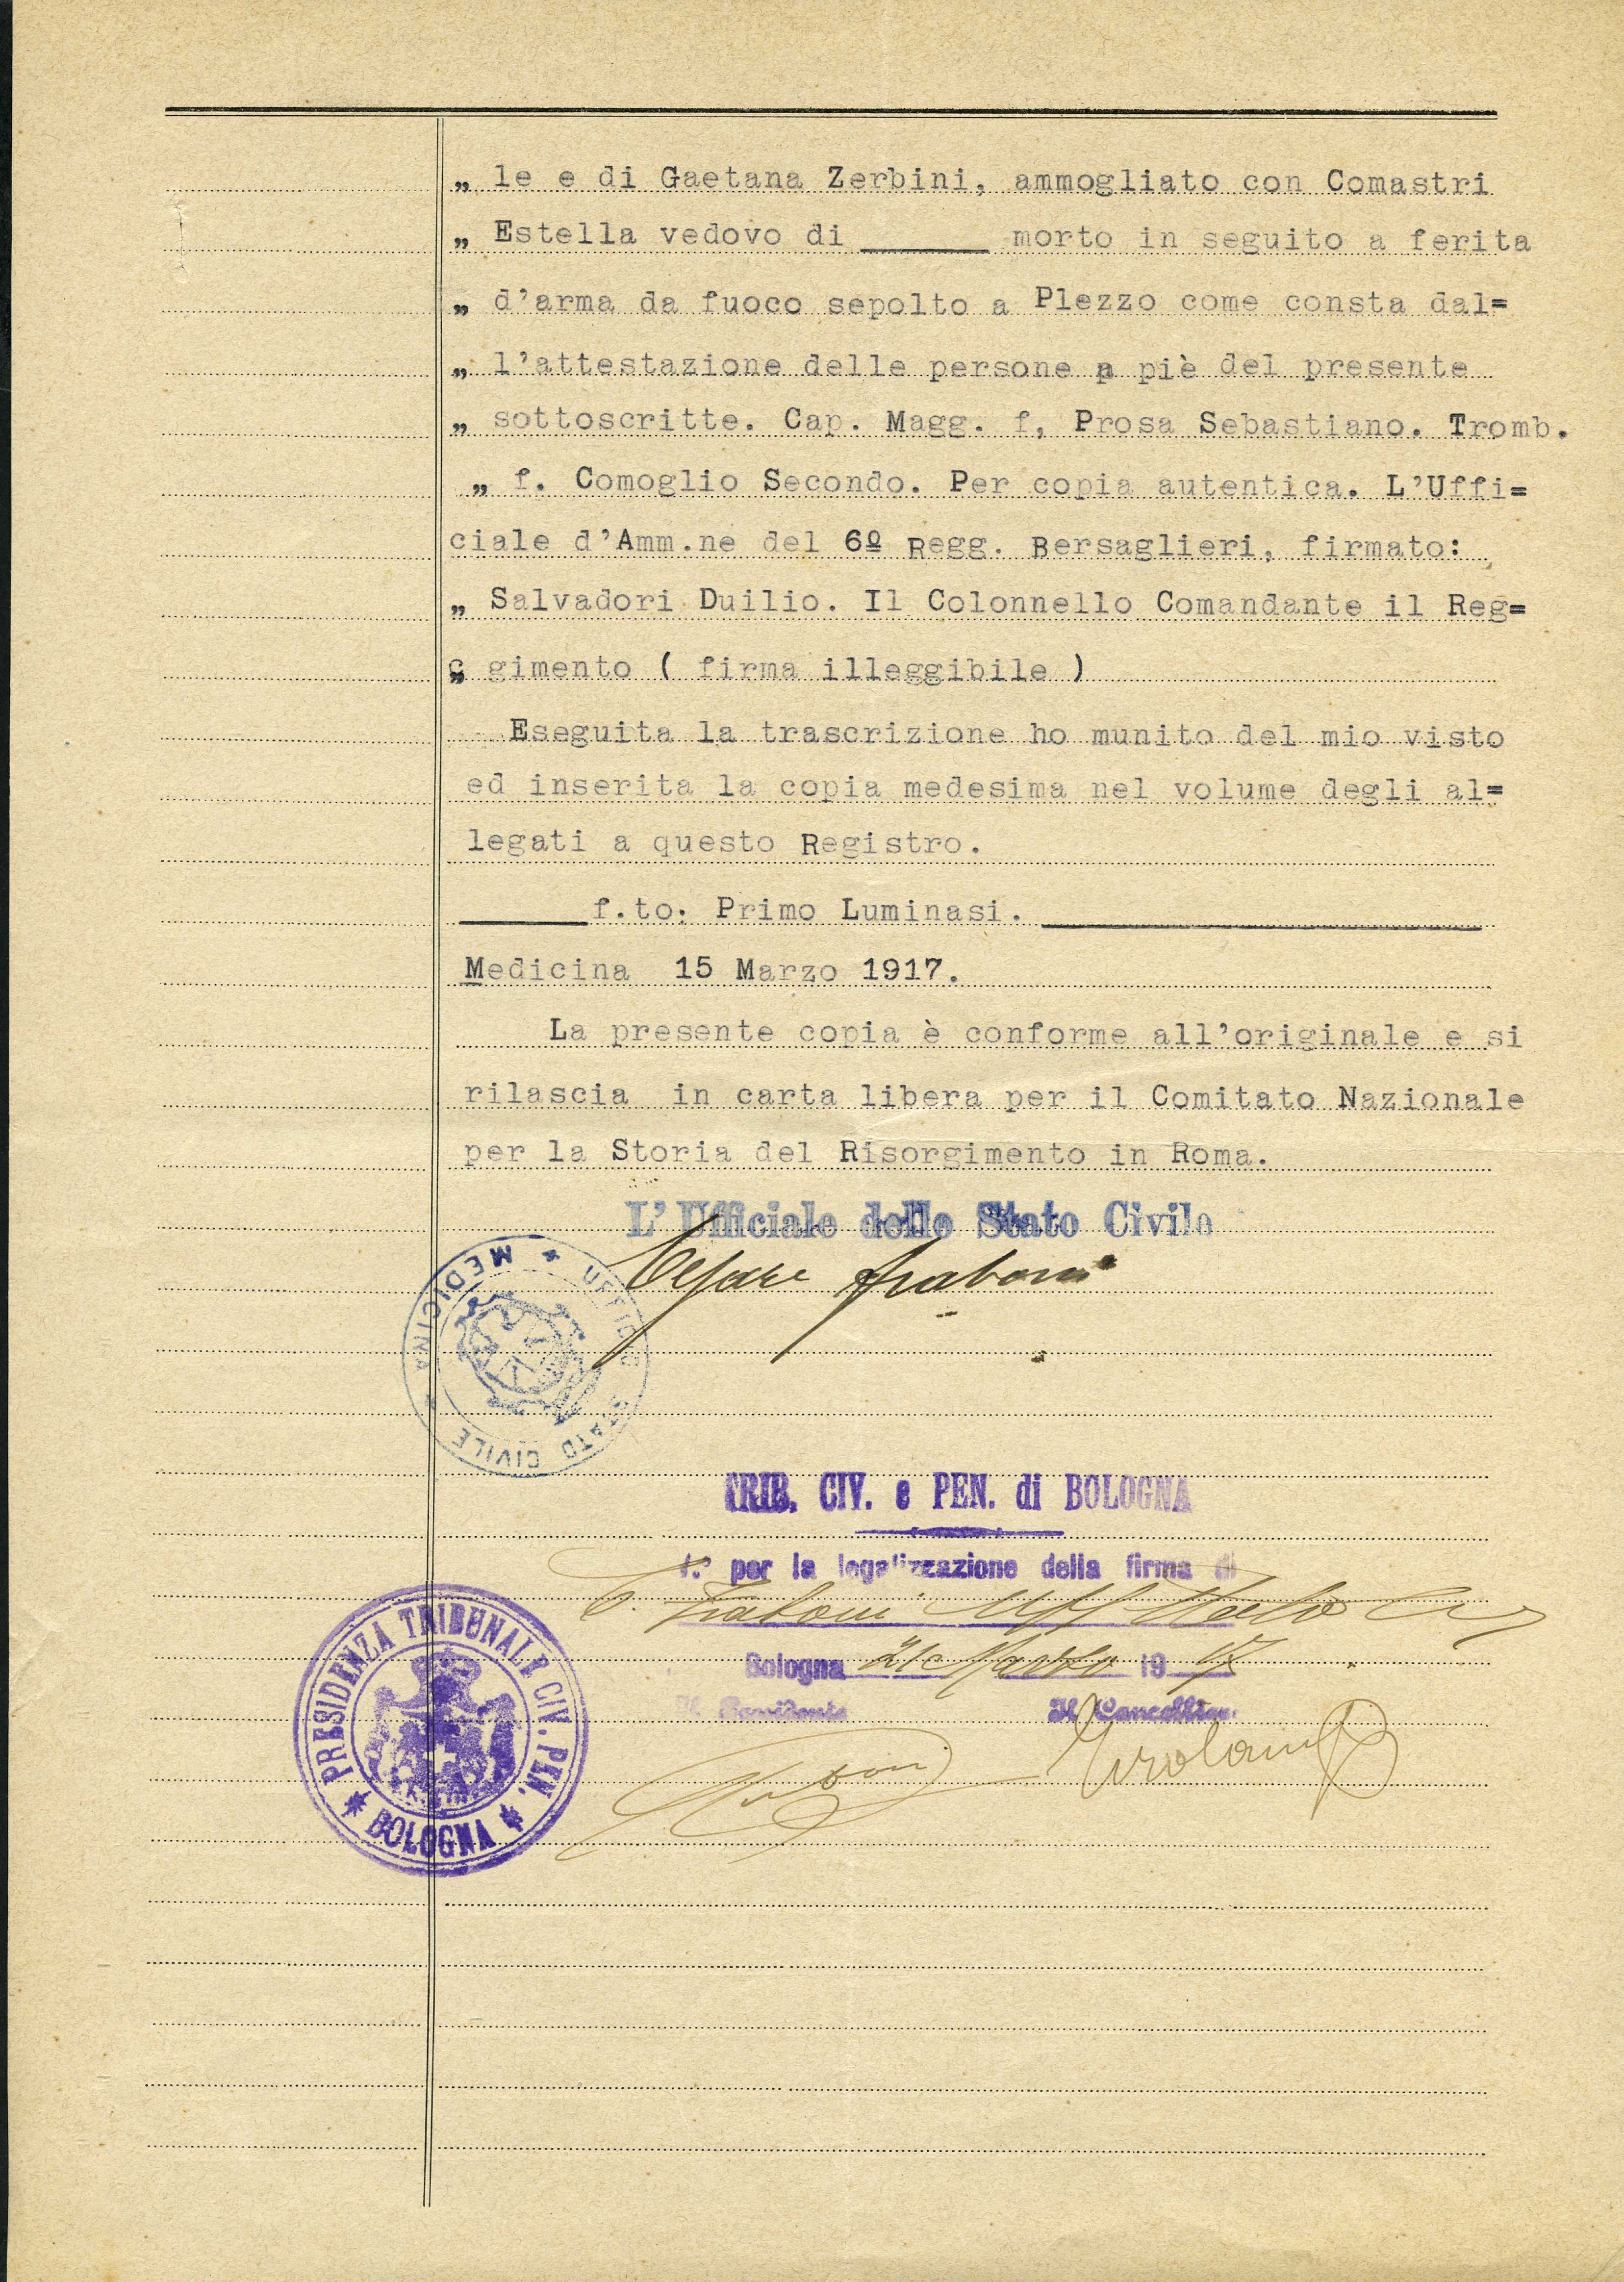 „ le e di Gaetana Zerbini, ammogliato con Comastri
„ Estella vedovo di ______ morto in seguito a ferita
„ d'arma da fuoco sepolto a Plezzo come consta dal=
„ l'attestazione delle persone a piè del presente
„ sottoscritte. Cap. Magg. f, Prosa Sebastiano. Tromb.
„ f. Comoglio Secondo. Per copia autentica. L'Uffi=
ciale d'Amm.ne del 6º Regg. Bersaglieri, firmato:
„ Salvadori Duilio. Il Colonnello Comandante il Reg=
„ gimento ( firma illeggibile )
Eseguita la trascrizione ho munito del mio visto
ed inserita la copia medesima nel volume degli al=
legati a questo Registro.
______f.to: Primo Luminasi.______
Medicina 15 Marzo 1917.
La presente copia è conforme all'originale e si
rilascia in carta libera per il Comitato Nazionale
per la Storia del Risorgimento in Roma.
L'Ufficiale dello Stato Civile
Cesare Fraboni
UFFICIO STATO CIVILE * MEDICINA *
TRIB. CIV. e PEN. di BOLOGNA
V.º per la legalizzazione della firma di
C. Fraboni Uff Stato Civ
Bologna 21 Marzo 1917
Il Presidente Il Cancelliere
PRESIDENZA TRIBUNALE CIV. PEN. * BOLOGNA *